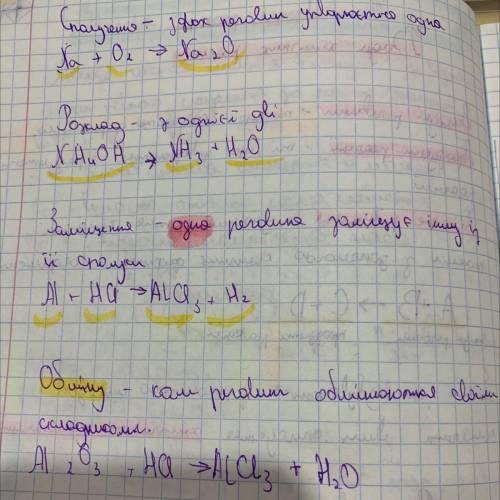 Сполучення – з двох речовин утворюється одна
Na + O2 → Na2O
Розклад – з однієї дві
NH4OH → NH3 + H2O
Заміщення – одна речовина заміщує іншу із
її сполуки
Al + HCl → AlCl3 + H2
Обміну – коли речовини обмінюються своїми
складовими.
Al2O3 + HCl → AlCl3 + H2O